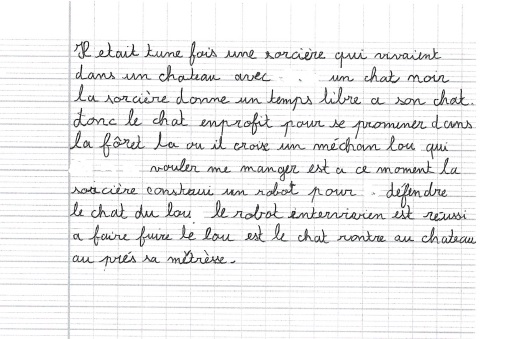 Il etait tune fois une sorcière qui vivaient
dans un chateau avec . . un chat noir
la sorcière donne un temps libre a son chat.
donc le chat enprofit pour se prominer dans
la fôret la ou il croise un méchan lou qui
vouler me manger est a ce moment la
sorcière constraui un robot pour . défendre
le chat du lou le robot intervien est reussi
a faire fuire le lou est le chat rontre au chateau
au prés sa mêtrèsse.